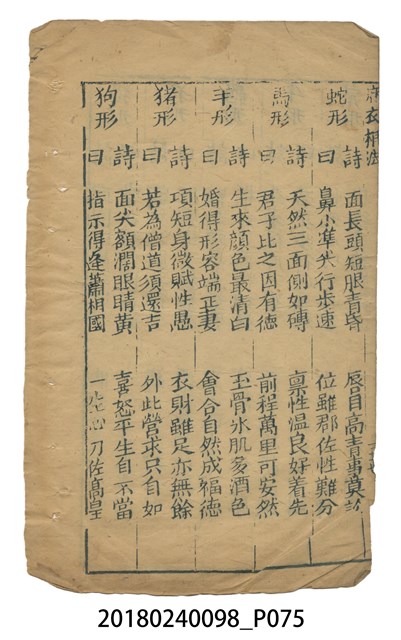 麻衣相法
蛇形 詩曰 面長頭短眼青昏 唇目高青事莫説
鼻小準尖行步速 位雖郡佐性難分
馬形 詩曰 天然三面側如磚 禀性温良好着先
君子比之因有德 前程萬里可安然
羊形 詩曰 生來顔色最清白 玉骨氷肌多酒色
婚得形容端正妻 會合自然成福德
猪形 詩曰 項短身微賦性愚 衣財雖足亦無餘
若為僧道須還吉 外此營求只自如
狗形 詩曰 面尖額濶眼睛黄 喜怒平生自不當
指示得逢蕭相國 一片心刀佐高皇
20180240098_P075